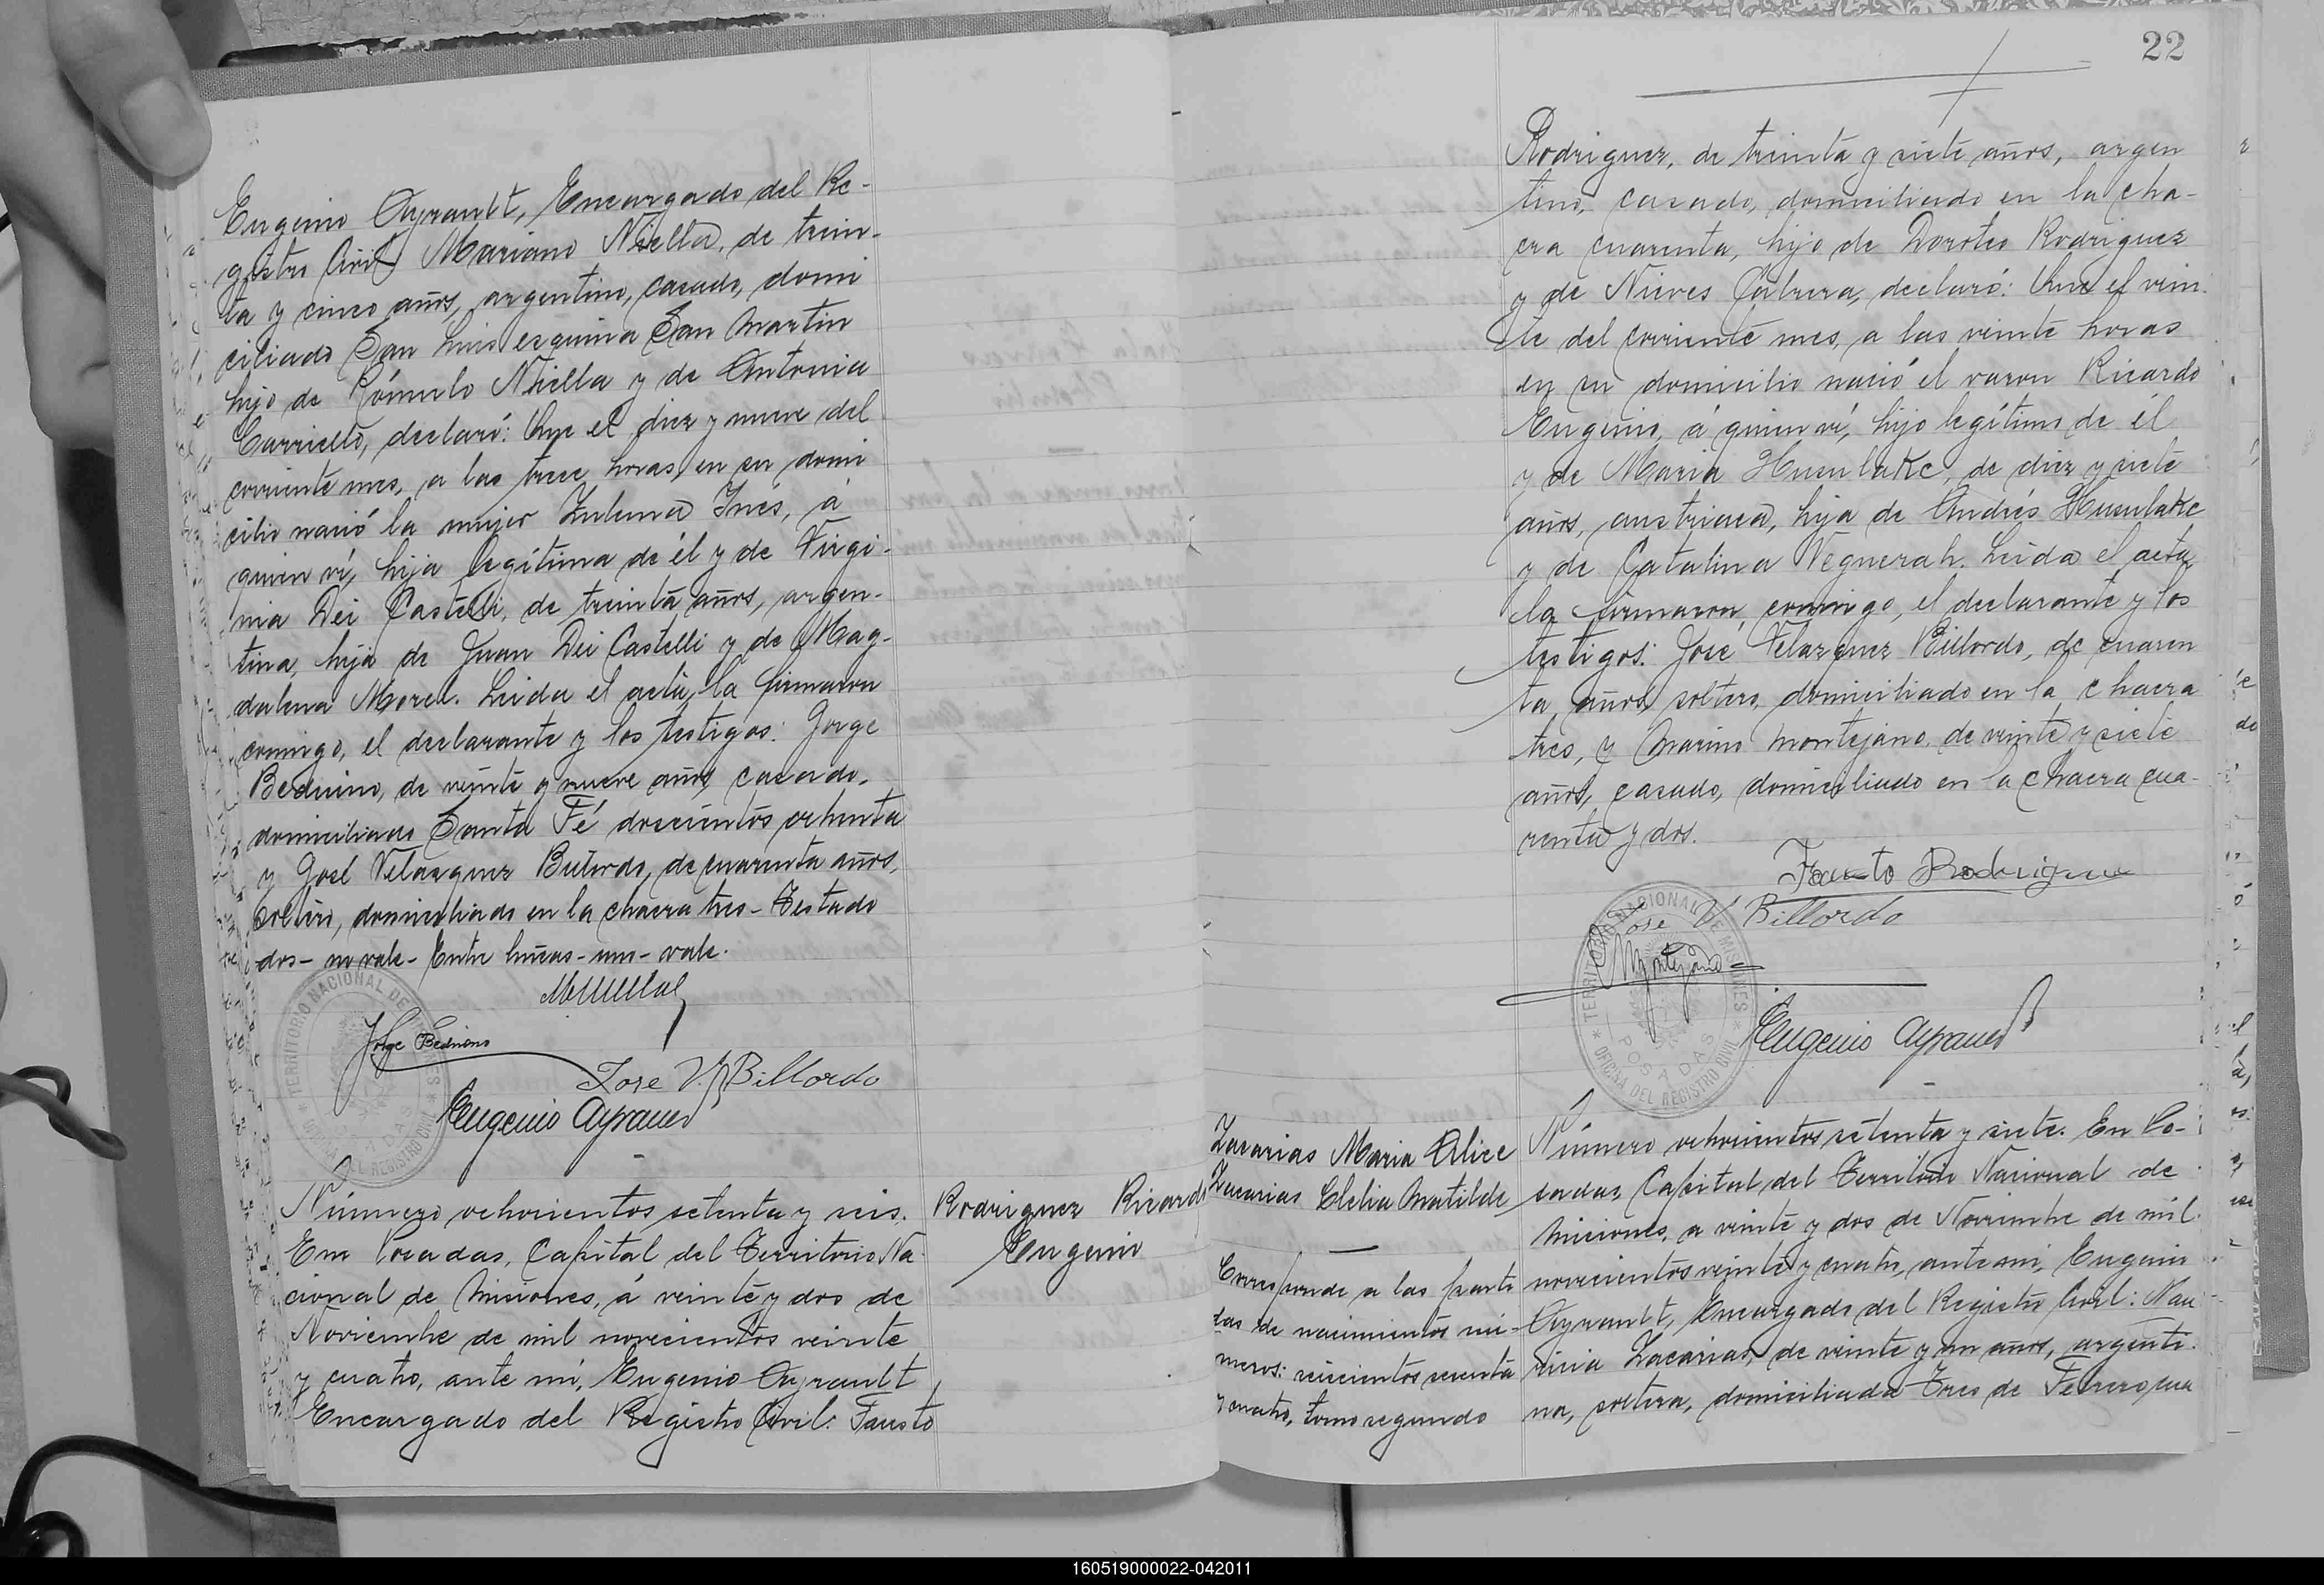 Eugenio Ayrault, Encargado del Re-
gistro Civil Mariano Niella, de trein-
ta y cinco años, argentino, casado, domi
ciliado San Luis esquina San Martin
hijo de Rómulo Niella y de Antonia
declaró: Que el diez y nueve del
corriente mes, a las trece horas, en su domi
cilio nació la mujer Zulema Ines, á
quien ví, hija legítima de él y de Virgi-
nia Dei Castelli, de treinta años, argen-
tina, hija de Juan Dei Castelli y de Mag-
dalena Morel. Leida el acta, la firmaron
comigo, el declarante y los testigos: Jorge
Beduino, de veinte y nueve años, casado,
domiciliado Santa Fé doscientos ochenta
y José Velazquez Billordo, de cuarenta años,
soltero, domiciliado en la chacra tres - Testado
dos - no vale - Entre lineas - uno - vale.
Jorge Beduino
Jose V. Billordo
Eugenio Ayrault
TERRITORIO NACIONAL DE MISIONES
POSADAS
OFICINA DEL REGISTRO CIVIL
Número ochocientos setenta y seis.
En Posadas, Capital del Territorio Na
cional de Misiones, á veinte y dos de
Noviembre de mil novecientos veinte
y cuatro, ante mí, Eugenio Ayrault
Encargado del Registro Civil: Fausto
Rodriguez Ricardo
Eugenio
22
Rodriguez, de treinta y siete años, argen
tino, casado, domiciliado en la cha-
cra cuarenta, hijo de Doroteo Rodriguez
y de Nieves Cabrera, declaró: Que el vein
te del corriente mes, a las veinte horas
en su domicilio nació el varon Ricardo
Eugenio, á quien ví, hijo legítimo de él
y de Maria Husulake, de diez y siete
años, austriaca, hija de Andrés Husulake
y de Catalina Veguerah. Leida el acta
la firmaron, comigo, el declarante y los
testigos: José Velazquez Billordo, de cuaren
ta años, soltero, domiciliado en la chacra
tres, y Marino Montejano, de veinte y siete
años, casado, domiciliado en la chacra cua-
renta y dos.
Fausto Rodriguez
Jose V Billordo
Montejano
Eugenio Ayrault
TERRITORIO NACIONAL DE MISIONES
POSADAS
OFICINA DEL REGISTRO CIVIL
Zacarias Maria Alice
Zacarias Clelia Matilde
Corresponde a las parti
das de nacimientos nú-
meros: seiscientos sesenta
y cuatro, tomo segundo
Número ochocientos setenta y siete. En Po-
sadas, Capital del Territorio Nacional de
Misiones, a veinte y dos de Noviembre de mil
novecientos veinte y cuatro, ante mí, Eugenio
Ayrault, Encargado del Registro Civil: Nau
ricia Zacarias, de veinte y un años, argenti-
na, soltera, domiciliada Tres de Febrero cua
160519000022-042011